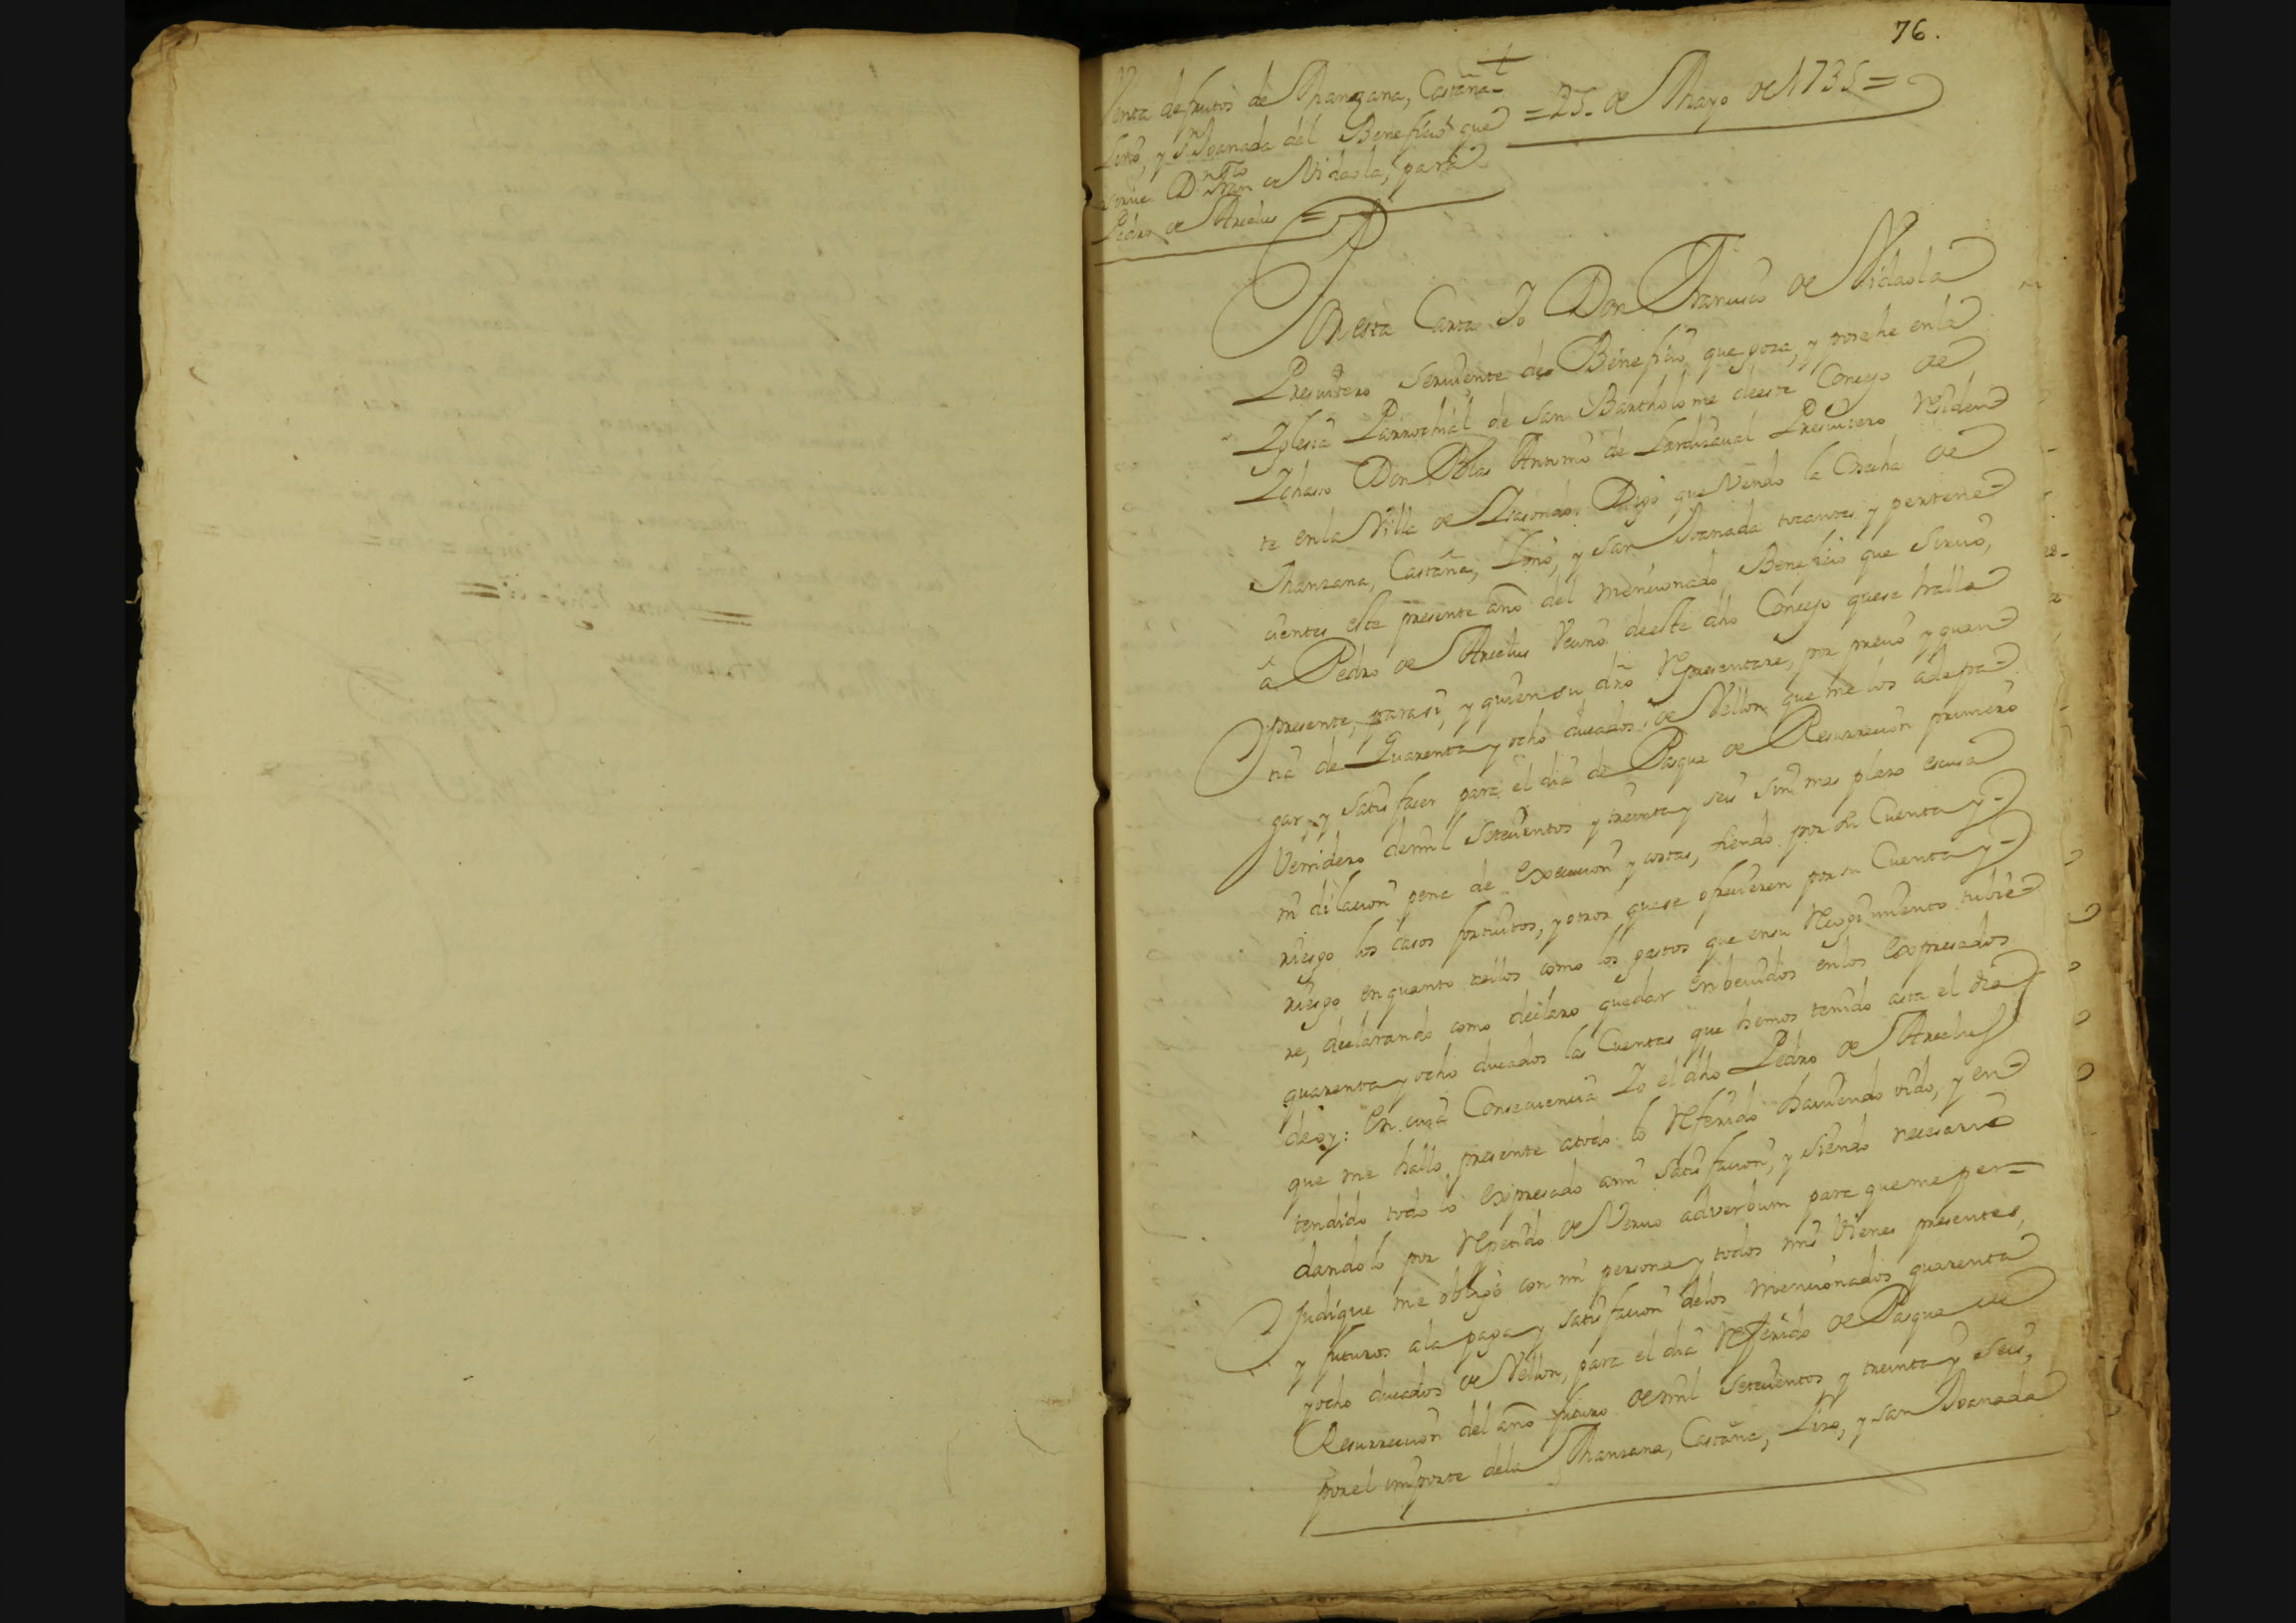 76.
+
Venta de frutos de Manzana, Castaña-
Lino, y Sn Joanada del Beneficio que
sirve Dn Franco de Vidaola, para
Pedro de Arcelus =
= 25. de Mayo de 1735 =
Por esta Carta Yo Don Francisco de Vidaola
Presvitero Serviente del Beneficio que goza, y posehe en la
Yglesia Parrochial de San Bartholome de este Concejo de
Ychaso Don Blas Antonio de Lardizaval Presvitero residen
te en la Villa de Digo que Vendo la Cosecha de
Manzana, Castaña, Lino, y San Joanada tocantes y pertene
cientes este presente año del mencionado Beneficio que sirvo,
â Pedro de Arcelus Vecino de este dho Concejo que se halla
presente, para si, y quien su dro representare, por precio y quan
tia de Quarenta y ocho ducados de Vellon que me los â de pa
gar, y satisfacer para el dia de Pasqua de Resurreccion primero
Venidero de mil Setecientos y treinta y seis sin mas plazo escusa
ni dilacion pena de Execucion y costas, siendo por su Cuenta y-
riesgo los casos fortuitos, y otros que se ofrecieren por su Cuenta y-
riesgo en quanto a ellos como los gastos que en su recogimiento tubie
re, declarando como declaro quedar enbevidos en los Expresados
quarenta y ocho ducados las Cuentas que hemos tenido asta el dia
de oy: En cuia Consecuencia Yo el dho Pedro de Arcelus
que me hallo presente a todo lo referido haviendo oido, y en
tendido todo lo Expresado a mi satisfacion, y siendo necesario
dandolo por repetido de Vervo adverbum para que me per-
judique me obligo con mi persona y todos mis Vienes presentes,
y futuros a la paga y satisfacion de los mencionados quarenta
y ocho ducados de Vellon, para el dia referido de Pasqua de
Resurreccion del año futuro de mil setecientos y treinta y seis,
por el importe de la Manzana, Castaña, Lino, y San Joanada